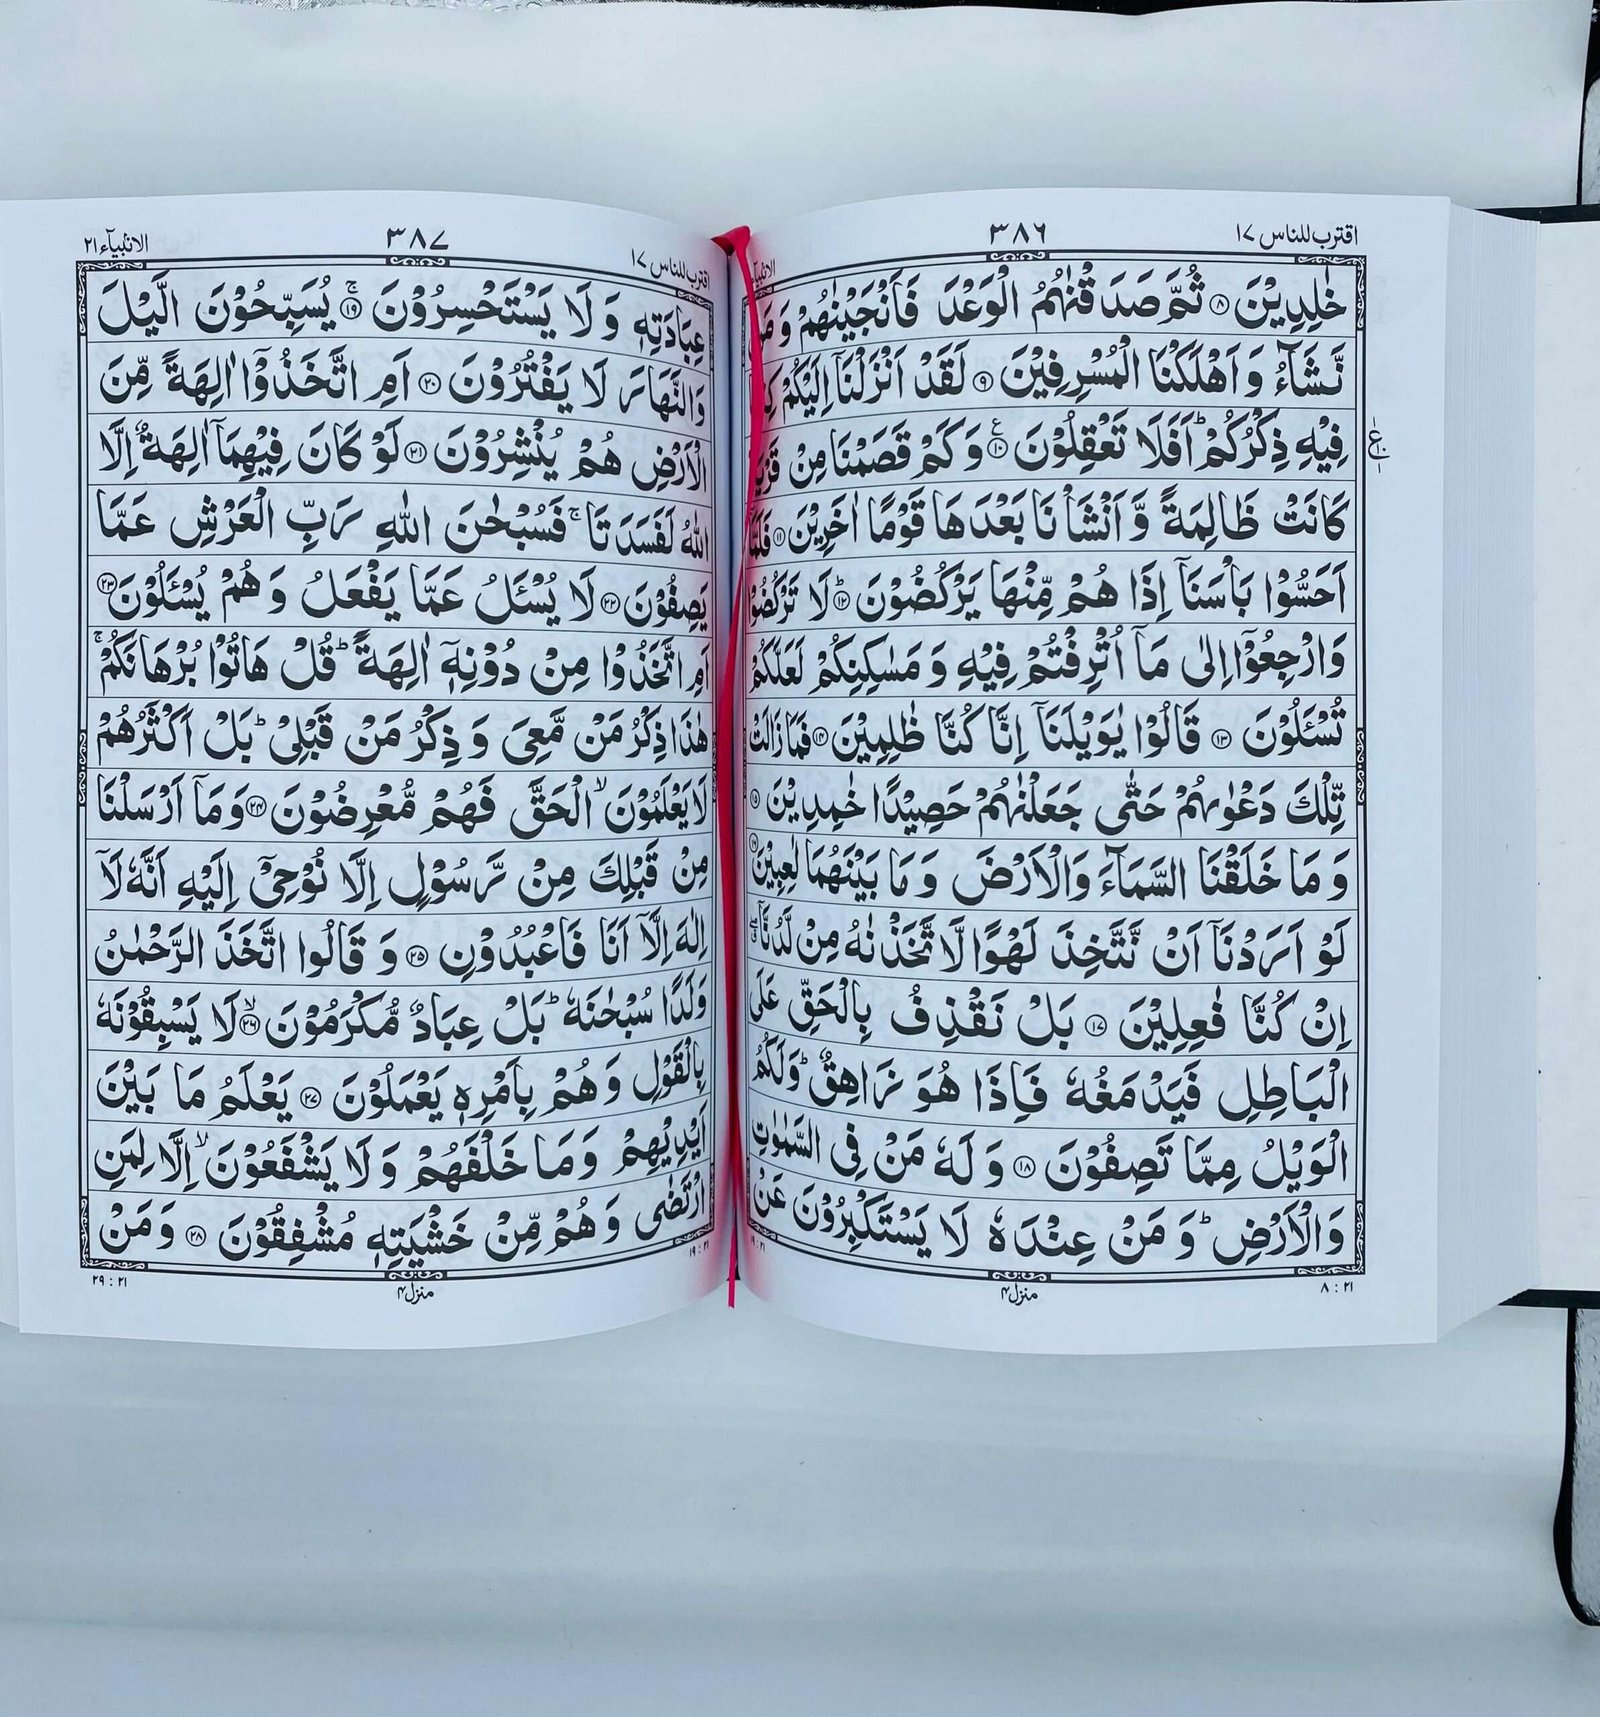 اقترب للناس ١٧
٣٨٦
خٰلِدِيْنَ ۝٨ ثُمَّ صَدَقْنٰهُمُ الْوَعْدَ فَاَنْجَيْنٰهُمْ وَ مَنْ
نَّشَآءُ وَ اَهْلَكْنَا الْمُسْرِفِيْنَ ۝٩ لَقَدْ اَنْزَلْنَاۤ اِلَيْكُمْ
فِيْهِ ذِكْرُكُمْ ؕ اَفَلَا تَعْقِلُوْنَ ۝١٠ وَ كَمْ قَصَمْنَا مِنْ
كَانَتْ ظَالِمَةً وَّ اَنْشَاْنَا بَعْدَهَا قَوْمًا اٰخَرِيْنَ ۝١١ فَلَمَّاۤ
اَحَسُّوْا بَاْسَنَاۤ اِذَا هُمْ مِّنْهَا يَرْكُضُوْنَ ۝١٢ؕ لَا تَرْكُضُوْا
وَارْجِعُوْۤا اِلٰى مَاۤ اُتْرِفْتُمْ فِيْهِ وَ مَسٰكِنِكُمْ لَعَلَّكُمْ
تُسْـَٔلُوْنَ ۝١٣ قَالُوْا يٰوَيْلَنَاۤ اِنَّا كُنَّا ظٰلِمِيْنَ ۝١٤ فَمَا زَالَتْ
تِّلْكَ دَعْوٰىهُمْ حَتّٰى جَعَلْنٰهُمْ حَصِيْدًا خٰمِدِيْنَ ۝١٥
وَ مَا خَلَقْنَا السَّمَآءَ وَالْاَرْضَ وَ مَا بَيْنَهُمَا لٰعِبِيْنَ ۝١٦
لَوْ اَرَدْنَاۤ اَنْ نَّتَّخِذَ لَهْوًا لَّاتَّخَذْنٰهُ مِنْ لَّدُنَّاۤ
اِنْ كُنَّا فٰعِلِيْنَ ۝١٧ بَلْ نَقْذِفُ بِالْحَقِّ عَلَى
الْبَاطِلِ فَيَدْمَغُهٗ فَاِذَا هُوَ زَاهِقٌ ؕ وَلَكُمُ
الْوَيْلُ مِمَّا تَصِفُوْنَ ۝١٨ وَ لَهٗ مَنْ فِى السَّمٰوٰتِ
وَالْاَرْضِ ؕ وَ مَنْ عِنْدَهٗ لَا يَسْتَكْبِرُوْنَ عَنْ
٨ : ٢١
منزل ٤
١٩ : ٢١
اقترب للناس ١٧
٣٨٧
الانبيآء ٢١
عِبَادَتِهٖ وَ لَا يَسْتَحْسِرُوْنَ ۝١٩ۚ يُسَبِّحُوْنَ الَّيْلَ
وَالنَّهَارَ لَا يَفْتُرُوْنَ ۝٢٠ اَمِ اتَّخَذُوْۤا اٰلِهَةً مِّنَ
الْاَرْضِ هُمْ يُنْشِرُوْنَ ۝٢١ لَوْ كَانَ فِيْهِمَاۤ اٰلِهَةٌ اِلَّا
اللّٰهُ لَفَسَدَتَا ۚ فَسُبْحٰنَ اللّٰهِ رَبِّ الْعَرْشِ عَمَّا
يَصِفُوْنَ ۝٢٢ لَا يُسْـَٔلُ عَمَّا يَفْعَلُ وَ هُمْ يُسْـَٔلُوْنَ ۝٢٣
اَمِ اتَّخَذُوْا مِنْ دُوْنِهٖۤ اٰلِهَةً ؕ قُلْ هَاتُوْا بُرْهَانَكُمْ ۚ
هٰذَا ذِكْرُ مَنْ مَّعِىَ وَ ذِكْرُ مَنْ قَبْلِىْ ؕ بَلْ اَكْثَرُهُمْ
لَا يَعْلَمُوْنَ ۙ الْحَقَّ فَهُمْ مُّعْرِضُوْنَ ۝٢٤ وَ مَاۤ اَرْسَلْنَا
مِنْ قَبْلِكَ مِنْ رَّسُوْلٍ اِلَّا نُوْحِىْۤ اِلَيْهِ اَنَّهٗ لَاۤ
اِلٰهَ اِلَّاۤ اَنَا فَاعْبُدُوْنِ ۝٢٥ وَ قَالُوا اتَّخَذَ الرَّحْمٰنُ
وَلَدًا سُبْحٰنَهٗ ؕ بَلْ عِبَادٌ مُّكْرَمُوْنَ ۝٢٦ۙ لَا يَسْبِقُوْنَهٗ
بِالْقَوْلِ وَ هُمْ بِاَمْرِهٖ يَعْمَلُوْنَ ۝٢٧ يَعْلَمُ مَا بَيْنَ
اَيْدِيْهِمْ وَ مَا خَلْفَهُمْ وَ لَا يَشْفَعُوْنَ ۙ اِلَّا لِمَنِ
ارْتَضٰى وَ هُمْ مِّنْ خَشْيَتِهٖ مُشْفِقُوْنَ ۝٢٨ وَ مَنْ
١٩ : ٢١
منزل ٤
٢٩ : ٢١